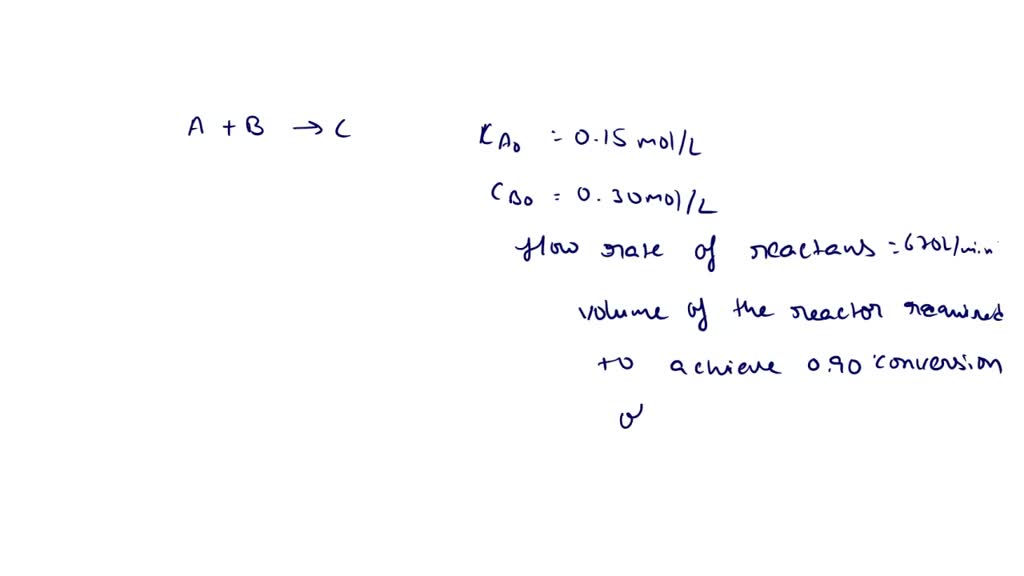 A + B → C
CA0 = 0.15 mol/L
CB0 = 0.30 mol/L
flow rate of reactans = 620L/min
volume of the reactor required
to achieve 0.90 conversion
of